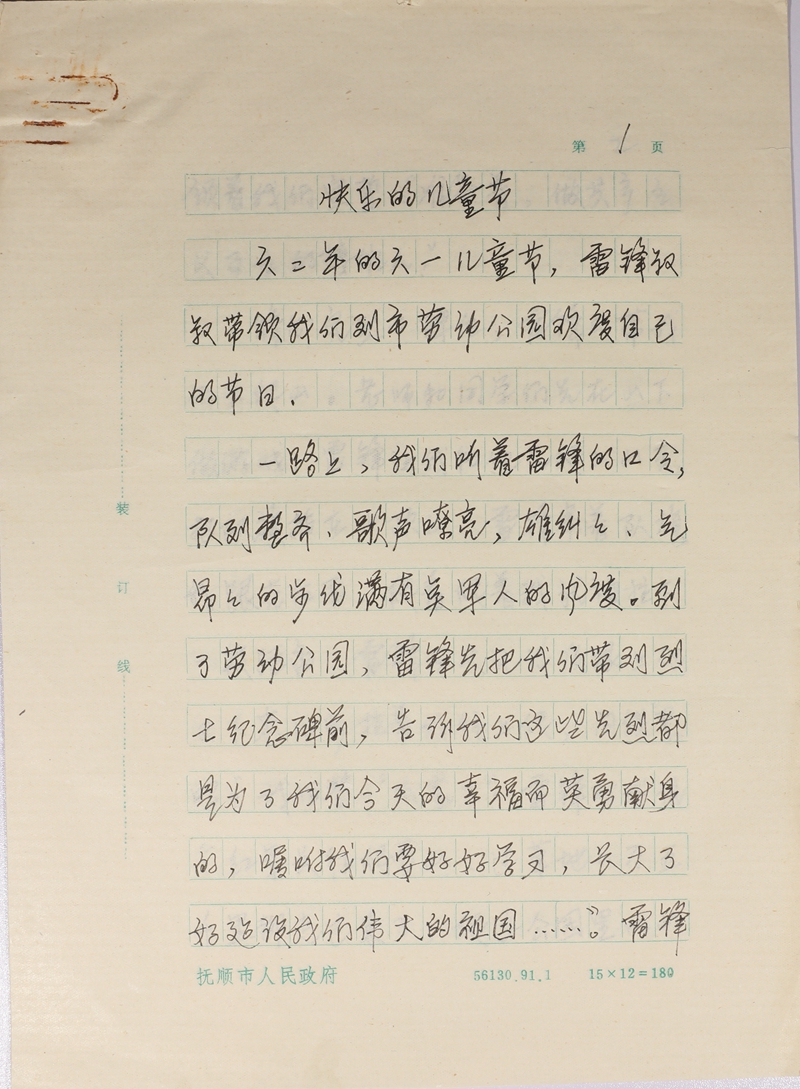 第 1 页
快乐的儿童节
六二年的六一儿童节，雷锋叔
叔带领我们到市劳动公园欢度自己
的节日．
一路上，我们听着雷锋的口令，
队列整齐、歌声嘹亮，雄纠々、气
昂々的步伐满有英军人的风度。到
了劳动公园，雷锋先把我们带到烈
士纪念碑前，告诉我们这些先烈都
是为了我们今天的幸福而英勇献身
的，嘱咐我们要好好学习，长大了
好建设我们伟大的祖国……”。雷锋
装
订
线
抚顺市人民政府 56130.91.1 15×12=180